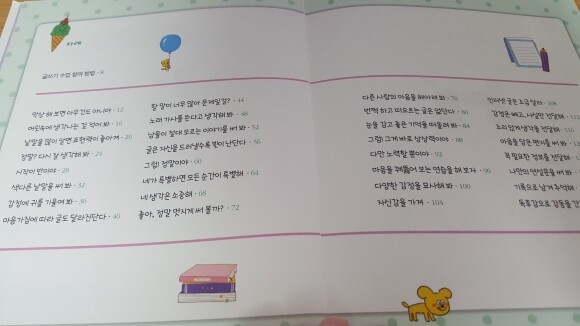 글쓰기 수업 활용 방법 · 8
막상 해 보면 아무것도 아니야 · 12
머릿속에 생각나는 걸 적어 봐 · 16
낱말을 많이 알면 표현력이 좋아져 · 20
정말? 다시 잘 생각해 봐 · 24
시작이 반이야 · 28
색다른 낱말을 써 봐 · 32
감정에 귀를 기울여 봐 · 36
마음가짐에 따라 글도 달라진단다 · 40
할 말이 너무 많아 문제일걸? · 44
노래 가사를 쓴다고 생각해 봐 · 48
남들이 절대 모르는 이야기를 써 봐 · 52
글은 자신을 드러낼수록 빛이 난단다 · 56
그럼! 정말이야 · 60
네가 특별하면 모든 순간이 특별해 · 64
네 생각은 소중해 · 68
좋아, 정말 멋지게 써 볼까? · 72
다른 사람의 마음을 헤아려 봐 · 76
번쩍 하고 떠오르는 글은 없단다 · 80
눈을 감고 좋은 기억을 떠올려 봐 · 84
그럼! 그게 바로 상상력이야 · 88
다만 노력할 뿐이야 · 92
마음을 꿰뚫어 보는 연습을 해 보자 · 96
다양한 감정을 묘사해 봐 · 100
자신감을 가져 · 104
인터뷰 글은 조금 달라 · 108
감정은 빼고, 사실만 전달해
논리 있게 생각을 전달해
마음을 담아 써 봐
꼭 필요한 정보를 전달해
나만의 명상문을 써 봐
기록으로 남겨 추억해
독후감으로 감동을